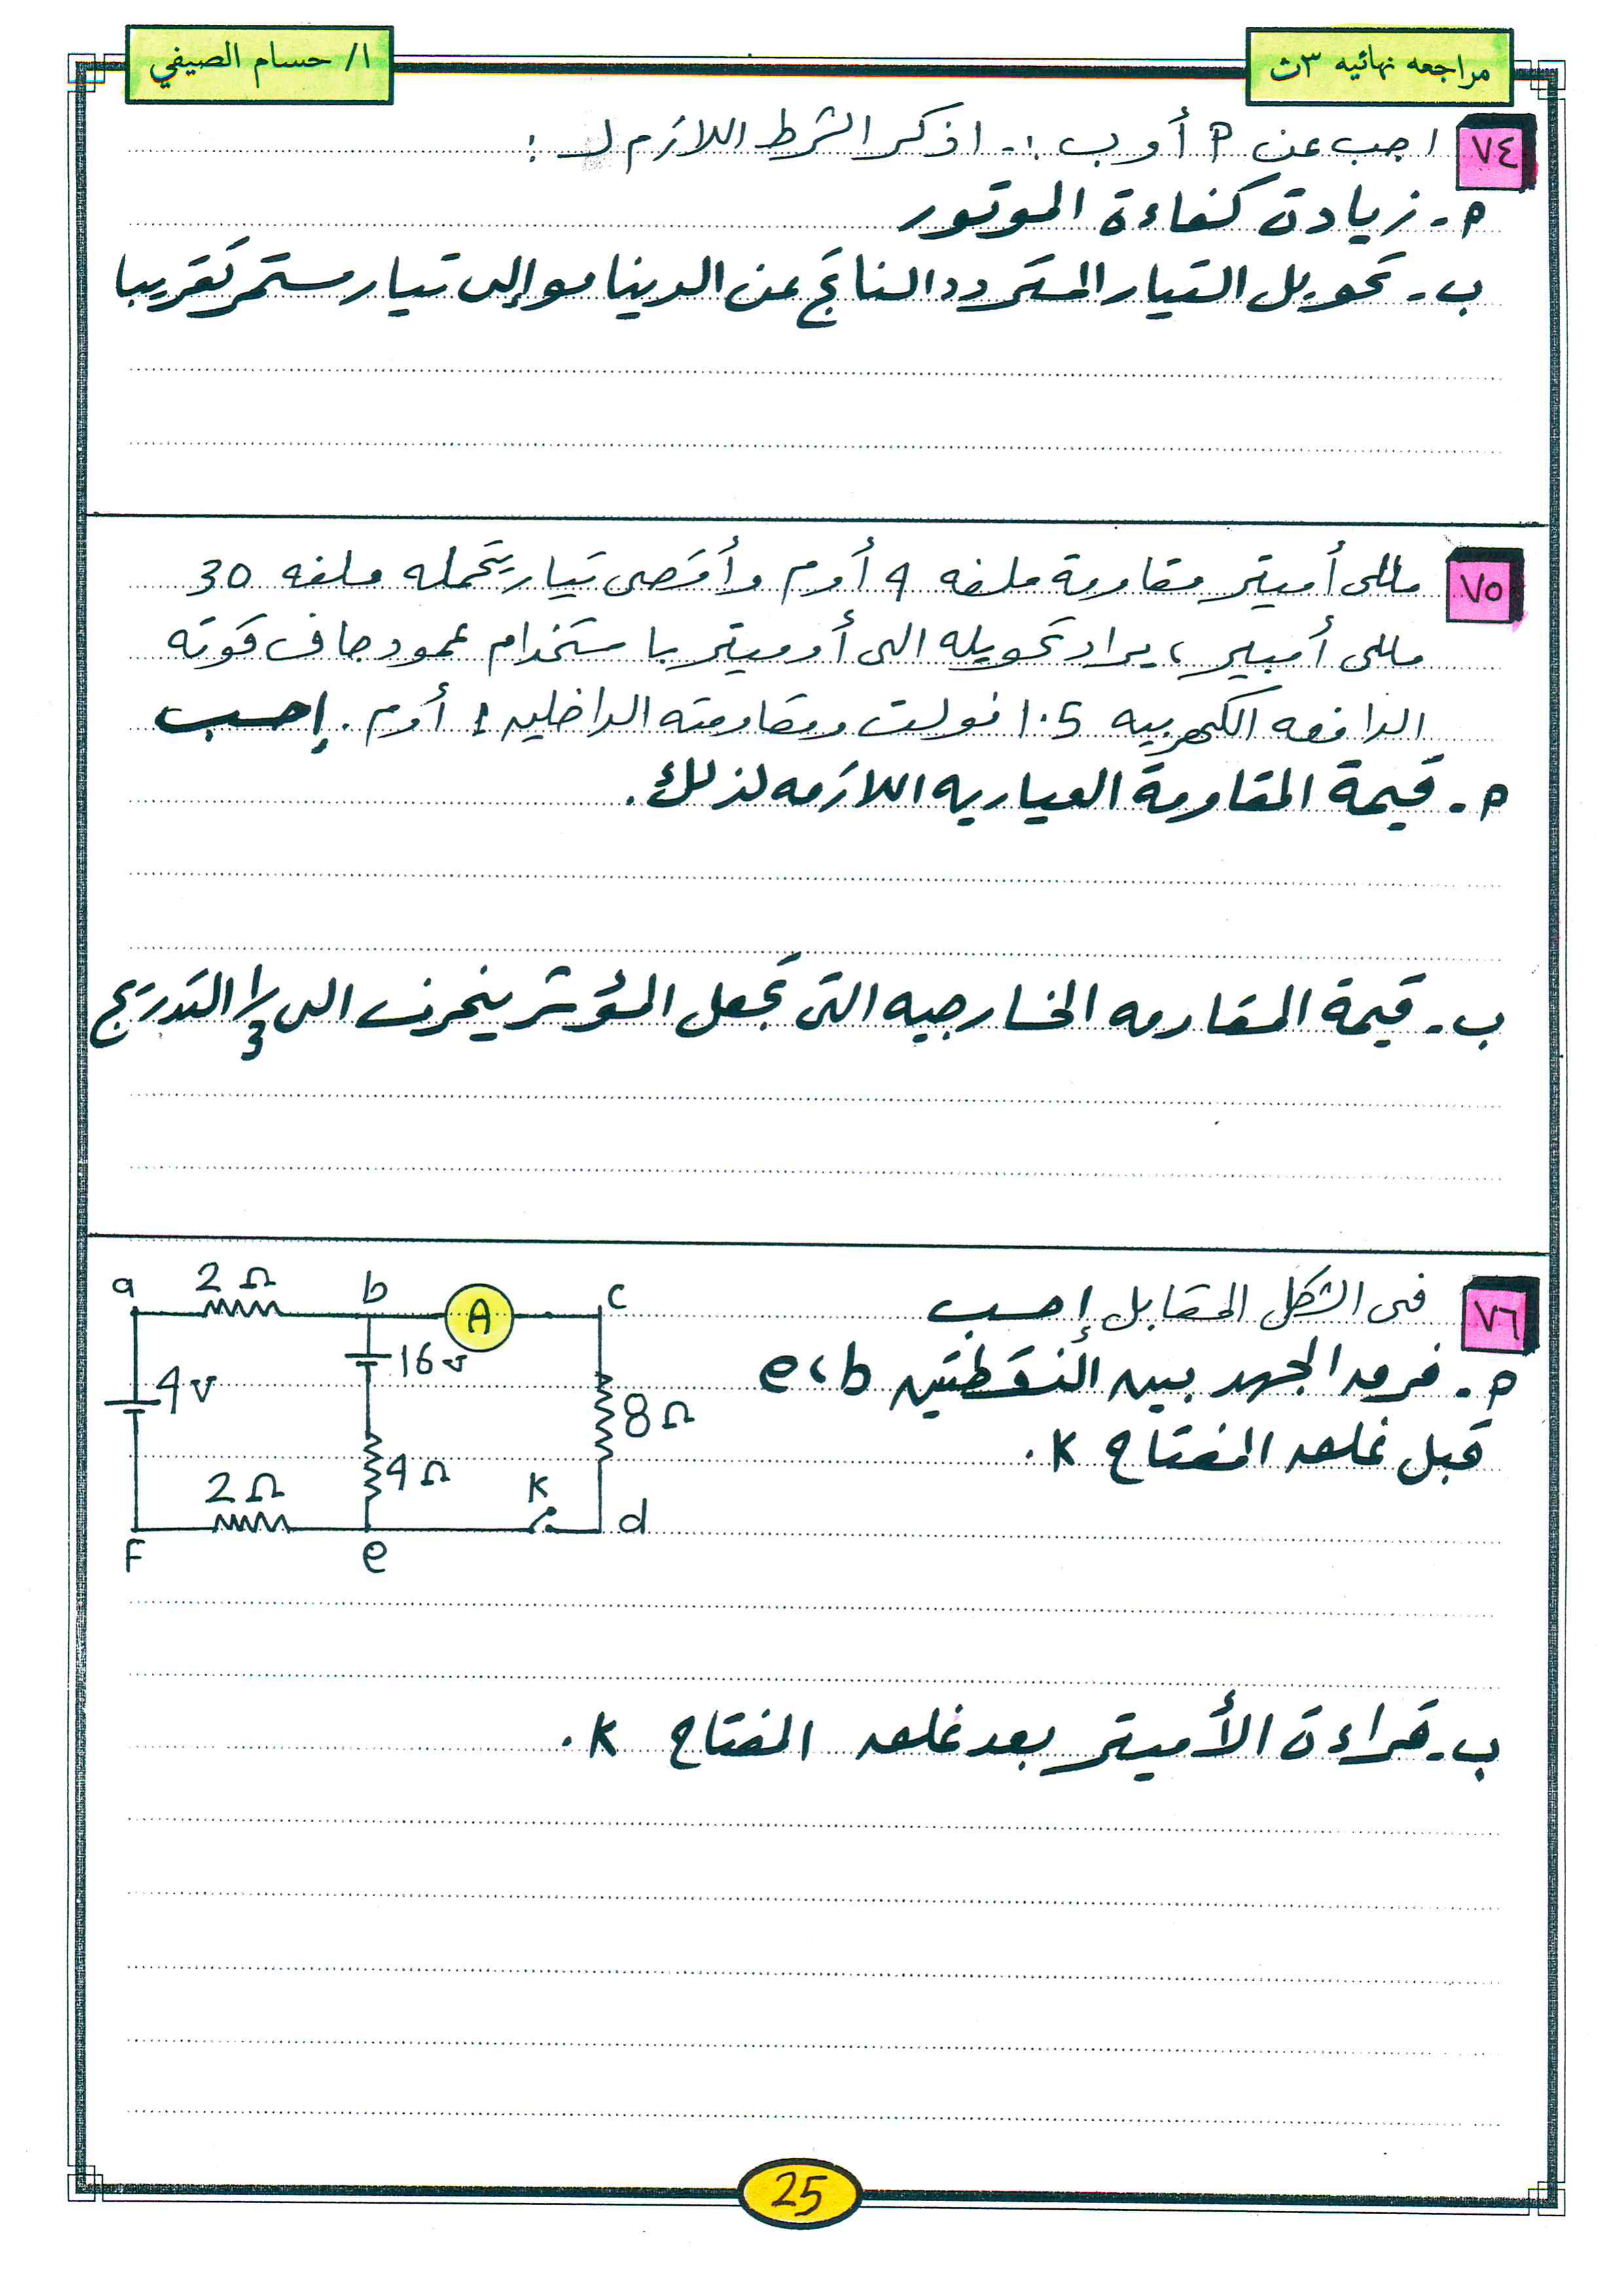 مراجعه نهائيه ٣ث
ا/ حسام الصيفي
٧٤ اجب عن P أو ب :- اذكر الشرط اللازم لـ :
P - زيادة كفاءة الموتور
ب - تحويل التيار المتردد الناتج عن الدينامو إلى تيار مستمر تقريبا
٧٥ مللى أميتر مقاومة ملفه 4 أوم وأقصى تيار يتحمله ملفه 30
مللى أمبير ، يراد تحويله الى أوميتر باستخدام عمود جاف قوته
الدافعه الكهربيه 1.5 فولت ومقاومته الداخليه 1 أوم . إحسب
P - قيمة المقاومة العياريه اللازمه لذلك .
ب - قيمة المقاومه الخارجيه التى تجعل المؤشر ينحرف الى 1/3 التدريج
٧٦ فى الشكل المقابل إحسب
P - فرق الجهد بين النقطتين e ، b
قبل غلق المفتاح K .
a 2 Ω b A c
16 v
4 V
8 Ω
4 Ω
2 Ω K
F e d
ب - قراءة الأميتر بعد غلق المفتاح K .
25